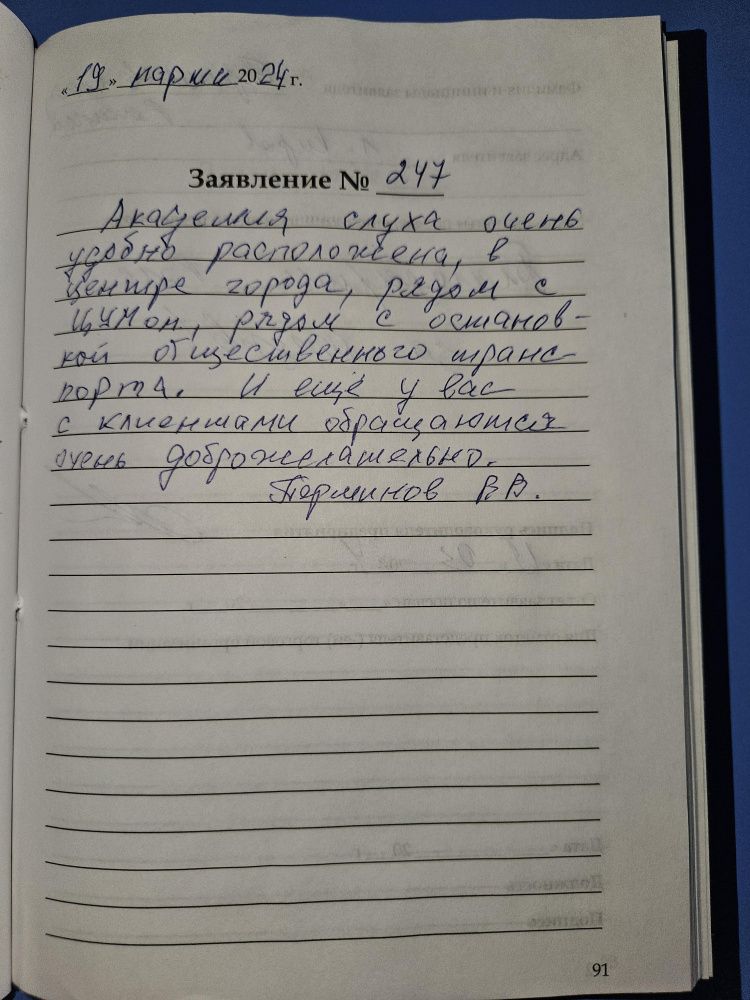 «19» марта 2024 г.
Заявление № 247
Академия слуха очень
удобно расположена, в
центре города, рядом с
ЦУМом, рядом с останов-
кой общественного транс-
порта. И ещё у вас
с клиентами обращаются
очень доброжелательно.
Перминов В В.
91